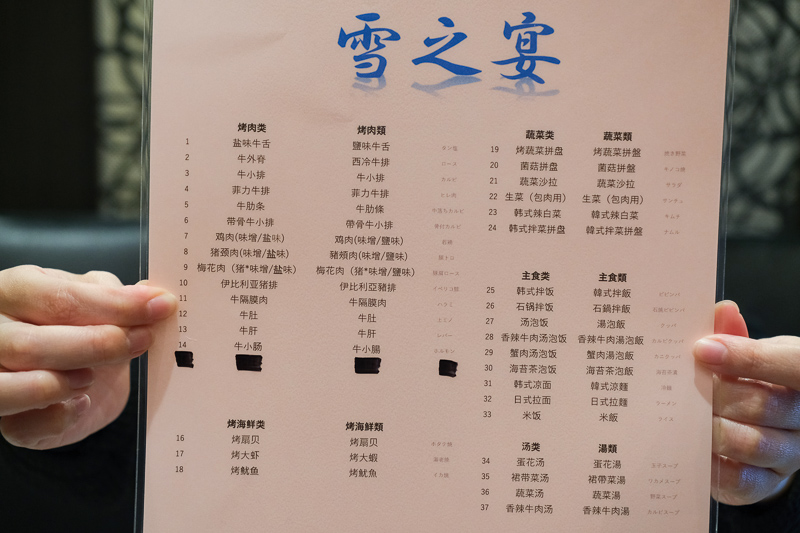 雪之宴
烤肉类 烤肉類
1 盐味牛舌 鹽味牛舌 タン塩
2 牛外脊 西冷牛排 ロース
3 牛小排 牛小排 カルビ
4 菲力牛排 菲力牛排 ヒレ肉
5 牛肋条 牛肋條 中落ちカルビ
6 带骨牛小排 帶骨牛小排 骨付カルビ
7 鸡肉(味增/盐味) 鷄肉(味增/鹽味)
8 猪颈肉(味增/盐味) 豬頰肉(味增/鹽味) 豚トロ
9 梅花肉（猪*味增/盐味) 梅花肉（豬*味增/鹽味)
10 伊比利亚猪排 伊比利亞豬排
11 牛隔膜肉 牛隔膜肉 ハラミ
12 牛肚 牛肚 ミノ
13 牛肝 牛肝 レバー
14 牛小肠 牛小腸 ホルモン
烤海鲜类 烤海鮮類
16 烤扇贝 烤扇贝 ホタテ焼
17 烤大虾 烤大蝦
18 烤鱿鱼 烤魷魚 イカ焼
蔬菜类 蔬菜類
19 烤蔬菜拼盘 烤蔬菜拼盤 焼き野菜
20 菌菇拼盘 菌菇拼盤 キノコ焼
21 蔬菜沙拉 蔬菜沙拉 サラダ
22 生菜（包肉用） 生菜（包肉用） サンチュ
23 韩式辣白菜 韓式辣白菜 キムチ
24 韩式拌菜拼盘 韓式拌菜拼盤 ナムル
主食类 主食類
25 韩式拌饭 韓式拌飯 ビビンバ
26 石锅拌饭 石鍋拌飯 石焼ビビンバ
27 汤泡饭 湯泡飯 クッパ
28 香辣牛肉汤泡饭 香辣牛肉湯泡飯 カルビクッパ
29 蟹肉汤泡饭 蟹肉湯泡飯 カニクッパ
30 海苔茶泡饭 海苔茶泡飯 海苔茶漬
31 韩式凉面 韓式涼麵 冷麺
32 日式拉面 日式拉麵 ラーメン
33 米饭 米飯 ライス
汤类 湯類
34 蛋花汤 蛋花湯 玉子スープ
35 裙带菜汤 裙帶菜湯 ワカメスープ
36 蔬菜汤 蔬菜湯 野菜スープ
37 香辣牛肉汤 香辣牛肉湯 カルビスープ